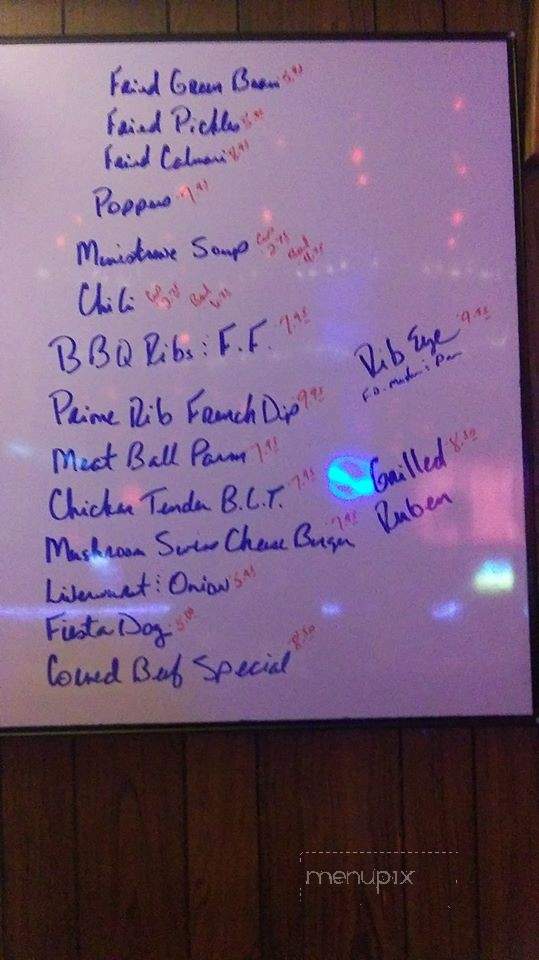 Fried Green Beans 5.95
Fried Pickles
Fried Calamari 8.95
Poppers 7.95
Ministrone Soup Cup Bowl
Chili Cup Bowl
BBQ Ribs : F.F. 7.95
Prime Rib French Dip 9.95
Rib Eye 9.95
Meat Ball Parm 7.95
Chicken Tender B.L.T. 7.95
Grilled 8.50
Ruben
Mushroom Swiss Cheese Burger 7.95
Liverwurst : Onion 5.95
Fiesta Dog 5.00
Corned Beef Special 8.50
menupix